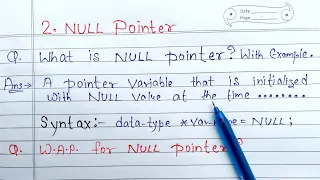 2. NULL Pointer
Date
Page
Q. What is NULL pointer? With Example.
Ans:→ A pointer variable that is initialized
with NULL value at the time ........
Syntax:- data-type *var-name = NULL;
Q. W.A.P. for NULL pointer?